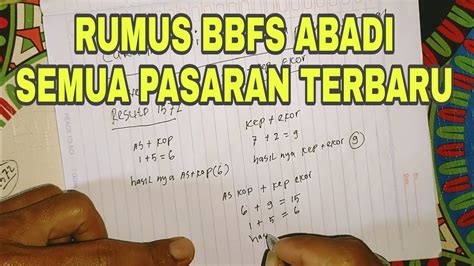 RUMUS BBFS ABADI
SEMUA PASARAN TERBARU
Result 1572
AS + KOP
1 + 5 = 6
hasil nya AS+KOP (6)
KEP + EKOR
7 + 2 = 9
hasil nya KEP + EKOR (9)
AS KOP + KEP EKOR
6 + 9 = 15
1 + 5 = 6
has